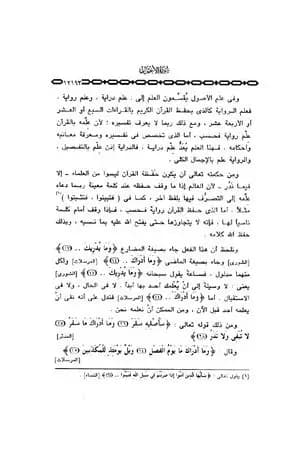 سورة الأحقاف
وفى علم الأصول يُقسِّمون العلم إلى : علم دراية ، وعلم رواية ،
فعلم الرواية كالذى يحفظ القرآن الكريم بالقراءات السبع أو العشر
أو الأربعة عشر ، ومع ذلك ربما لا يعرف تفسيره ؛ لأن علْمه بالقرآن
علْم رواية فحسب ، أما الذى تخصص فى تفسيره ومعرفة معانيه
وأحكامه ، فهذا العلم يُعَدُّ علْم دراية ، فالدراية إذن علْم بالتفصيل ،
والرواية علم بالإجمال الكلى .
ومن حكمته تعالى أن يكون حفَظة القرآن ليسوا من العلماء – إلا
فيما ندُر – لأن العالم إذا ما وقف حفظه عند كلمة معينة ربما دعاه
علْمه إلى التصرُّف فيها بلفظ آخر ، كما فى ( فتبينوا ، فتثبتوا )(١)
مثلاً ، أما الذى حفظ القرآن رواية فحسب ، فإذا وقف أمام كلمة
ناسياً لها ، فإنه لا يتجاوزها حتى يفتح الله عليه بما نسيه ، وبذلك
حفظ الله كلامه .
ونلحظ أن هذا الفعل جاء بصيغة المضارع ﴿ وَمَا يُدْرِيكَ .. (١٧) ﴾
[الشورى] وجاء بصيغة الماضى ﴿ وَمَا أَدْرَاكَ .. (١٤) ﴾ [المرسلات] ولكل
منهما مدلول ، فساعة يقول سبحانه ﴿ وَمَا يُدْرِيكَ .. (١٧) ﴾ [الشورى]
يعنى : لا وسيلة إلى أنْ يُعلمك أحد بها أبداً ، لا فى الحال ، ولا فى
الاستقبال . أما ﴿ وَمَا أَدْرَاكَ .. (١٤) ﴾ [المرسلات] فتدل على أنه نفى أنْ
يعلمه أحد قبل الآن ، ومن الممكن أنْ نعلمه نحن .
ومن ذلك قوله تعالى : ﴿ سَأُصْلِيهِ سَقَرَ (٢٦) وَمَا أَدْرَاكَ مَا سَقَرُ (٢٧)
لا تُبْقِي وَلا تَذَرُ (٢٨) ﴾ [المدثر]
وقال ﴿ وَمَا أَدْرَاكَ مَا يَوْمُ الْفَصْلِ (١٤) وَيْلٌ يَوْمَئِذٍ لِّلْمُكَذِّبِينَ (١٥) ﴾
[المرسلات]
(١) يقول تعالى : ﴿ يَا أَيُّهَا الَّذِينَ آمَنُوا إِذَا ضَرَبْتُمْ فِي سَبِيلِ اللَّهِ فَتَبَيَّنُوا .. (٩٤) ﴾ [النساء] .